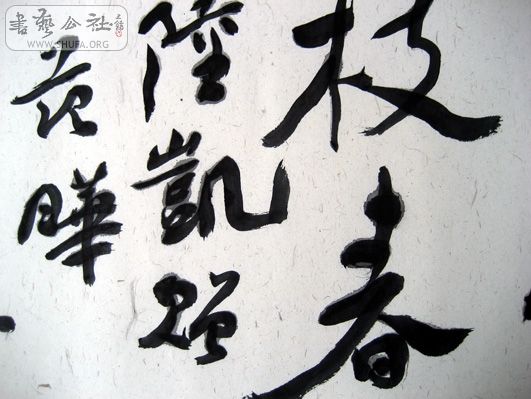 枝春
陸凱贈
范曄
書藝公社
WWW.SHUFA.ORG